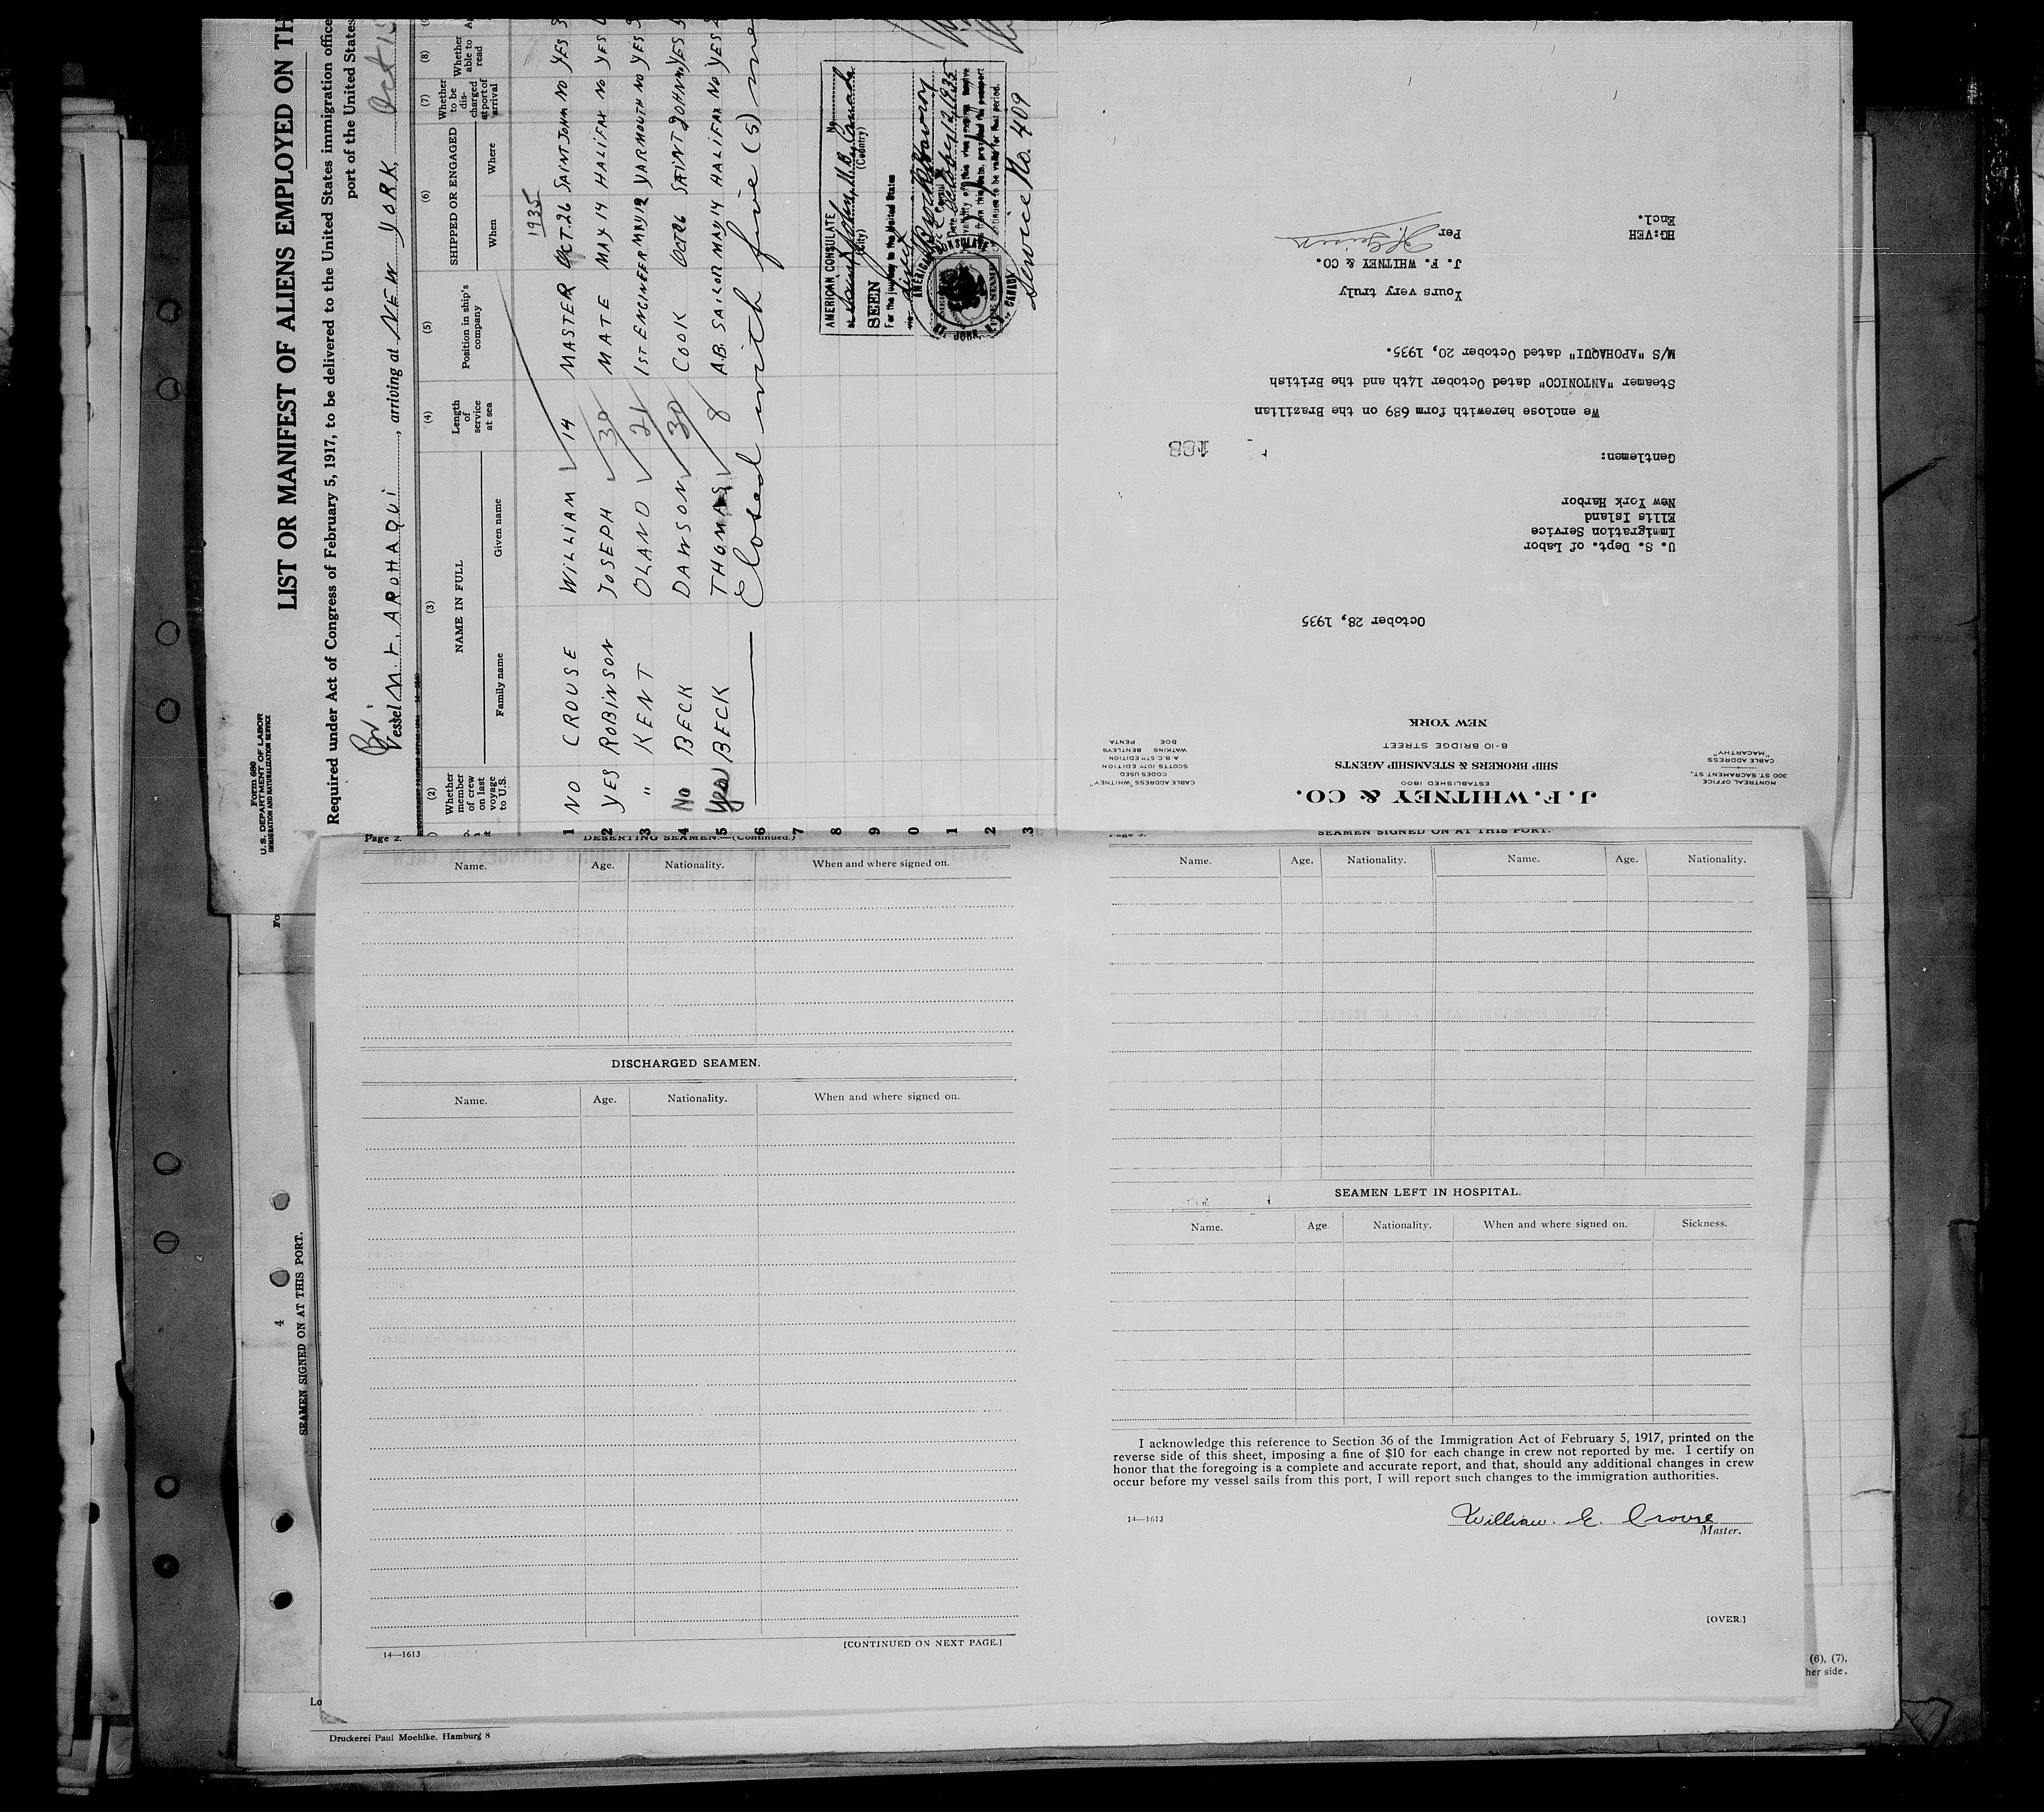 Form 689
U. S. DEPARTMENT OF LABOR
IMMIGRATION AND NATURALIZATION SERVICE
LIST OR MANIFEST OF ALIENS EMPLOYED ON TH
Required under Act of Congress of February 5, 1917, to be delivered to the United States immigration office
port of the United States
Br.
Vessel M.V. APOHAQUI, arriving at NEW YORK, Oct 15
(2) (3) (4) (5) (6) (7) (8)
Whether member of crew on last voyage to U.S.
NAME IN FULL
Family name Given name
Length of service at sea
Position in ship's company
SHIPPED OR ENGAGED
When Where
Whether to be discharged at port of arrival
Whether able to read
1935
1 NO CROUSE WILLIAM 14 MASTER OCT. 26 SAINT JOHN NO YES
2 YES ROBINSON JOSEPH 30 MATE MAY 14 HALIFAX NO YES
3 " KENT OLAND 21 1ST ENGINEER MAY 12 YARMOUTH NO YES
4 No BECK DAWSON 30 COOK OCT 26 SAINT JOHN NO YES
5 Yes BECK THOMAS 8 A.B. SAILOR MAY 14 HALIFAX NO YES
6 Closed with five (5) me
7
8
9
0
1
2
3
AMERICAN CONSULATE
at Saint John, N.B., Canada
(City) (Country)
No.
SEEN
For the journey to the United States
direct
Date October 12, 1935
AMERICAN CONSULATE
ST. JOHN, N.B., CANADA
Service No. 409
J. F. WHITNEY & CO.
ESTABLISHED 1800
SHIP BROKERS & STEAMSHIP AGENTS
8-10 BRIDGE STREET
NEW YORK
MONTREAL OFFICE
300 ST. SACRAMENT ST.,
CABLE ADDRESS
"MACARTHY"
CABLE ADDRESS, "WHITNEY"
CODES USED
SCOTTS 10TH EDITION
A.B.C. 5TH EDITION
WATKINS BENTLEYS
BOE PENTA
October 28, 1935
U. S. Dept. of Labor
Immigration Service
Ellis Island
New York Harbor
Gentlemen:
188
We enclose herewith form 689 on the Brazilian
Steamer "ANTONICO" dated October 14th and the British
M/S "APOHAQUI" dated October, 20, 1935.
Yours very truly
J. F. WHITNEY & CO.
Per
HG:VEH
Encl.
Page 2.
DESERTING SEAMEN.—(Continued.)
Name. Age. Nationality. When and where signed on.
DISCHARGED SEAMEN.
Name. Age. Nationality. When and where signed on.
[CONTINUED ON NEXT PAGE.]
14—1613
SEAMEN SIGNED ON AT THIS PORT.
Name. Age. Nationality. Name. Age. Nationality.
SEAMEN LEFT IN HOSPITAL.
Name. Age. Nationality. When and where signed on. Sickness.
I acknowledge this reference to Section 36 of the Immigration Act of February 5, 1917, printed on the
reverse side of this sheet, imposing a fine of $10 for each change in crew not reported by me. I certify on
honor that the foregoing is a complete and accurate report, and that, should any additional changes in crew
occur before my vessel sails from this port, I will report such changes to the immigration authorities.
William. E. Crouse
Master.
14—1613
[OVER.]
(6), (7),
her side.
4
SEAMEN SIGNED ON AT THIS PORT.
Fo
Lo
Druckerei Paul Moehlke, Hamburg 8